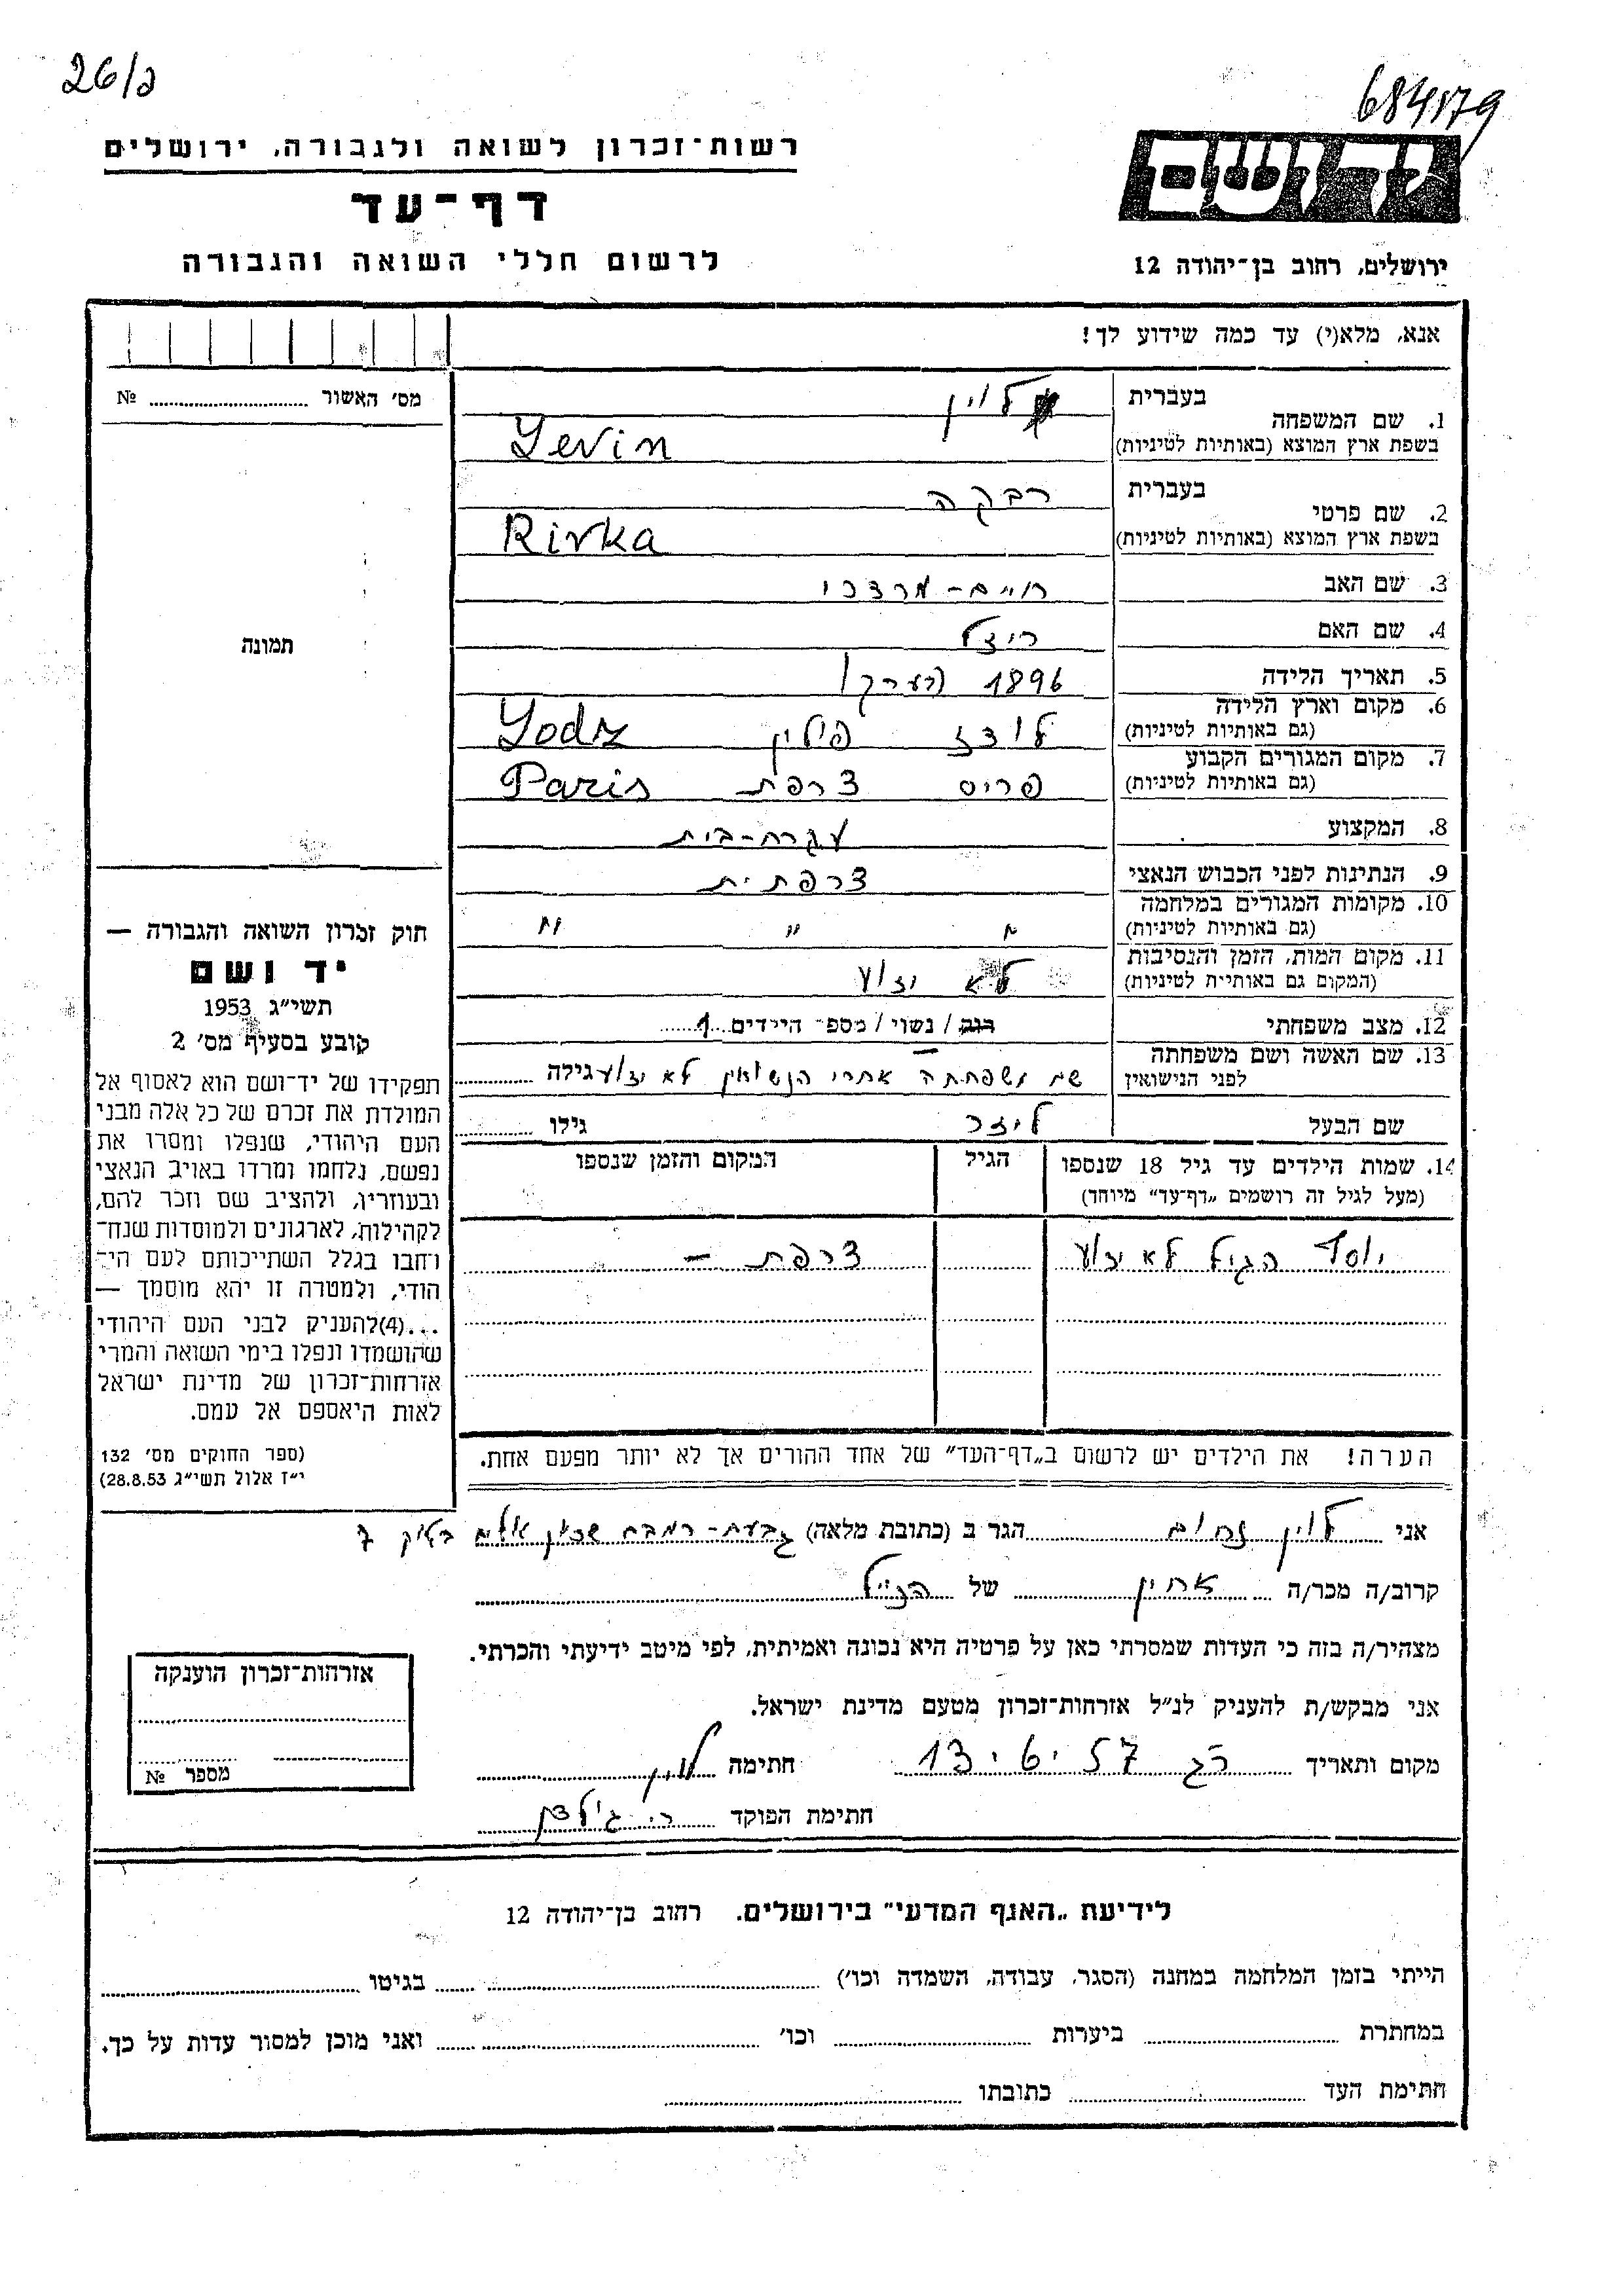 26/כ
684179
רשות־זכרון לשואה ולגבורה, ירושלים
דף־עד
לרשום חללי השואה והגבורה
יד ושם
ירושלים, רחוב בן־יהודה 12
אנא, מלא(י) עד כמה שידוע לך!
מס׳ האשור № 
תמונה
חוק זכרון השואה והגבורה —
יד ושם
תשי״ג 1953
קובע בסעיף מס׳ 2
תפקידו של יד־ושם הוא לאסוף אל
המולדת את זכרם של כל אלה מבני
העם היהודי, שנפלו ומסרו את
נפשם, נלחמו ומרדו באויב הנאצי
ובעוזריו, ולהציב שם וזכר להם,
לקהילות, לארגונים ולמוסדות שנח־
רחבו בגלל השתייכותם לעם הי־
הודי, ולמטרה זו יהא מוסמך —
...(4)להעניק לבני העם היהודי
שהושמדו ונפלו בימי השואה והמרי
אזרחות־זכרון של מדינת ישראל
לאות היאספם אל עמם.
(ספר החוקים מס׳ 132
י״ז אלול תשי״ג 28.8.53)
בעברית לוין
1. שם המשפחה
בשפת ארץ המוצא (באותיות לטיניות) Levin
בעברית רבקה
2. שם פרטי
בשפת ארץ המוצא (באותיות לטיניות) Rivka
3. שם האב חיים-מרדכי
4. שם האם ריצל
5. תאריך הלידה 1896 (בערך)
6. מקום וארץ הלידה
(גם באותיות לטיניות) לודז פולין Lodz
7. מקום המגורים הקבוע
(גם באותיות לטיניות) פריס צרפת Paris
8. המקצוע עקרת-בית
9. הנתינות לפני הכבוש הנאצי צרפתית
10. מקומות המגורים במלחמה
(גם באותיות לטיניות) " " "
11. מקום המות, הזמן והנסיבות
(המקום גם באותיית לטיניות) לא ידוע
12. מצב משפחתי רוק / נשוי / מספר הילדים 1
13. שם האשה ושם משפחתה
לפני הנישואין שם משפחתה אחרי הנשואין לא ידוע גילה
שם הבעל ליזר גילו
14. שמות הילדים עד גיל 18 שנספו הגיל המקום והזמן שנספו
(מעל לגיל זה רושמים „דף־עד״ מיוחד)
יוסף הגיל לא ידוע צרפת -
הערה! את הילדים יש לרשום ב„דף־העד״ של אחד ההורים אך לא יותר מפעם אחת.
אני לוין נחום הגר ב (כתובת מלאה) גבעת-רמבם שכון אלים בלוק 7
קרוב/ה מכר/ה אחין של הנ״ל
מצהיר/ה בזה כי העדות שמסרתי כאן על פרטיה היא נכונה ואמיתית, לפי מיטב ידיעתי והכרתי.
אני מבקש/ת להעניק לנ״ל אזרחות־זכרון מטעם מדינת ישראל.
מקום ותאריך רג 13.6.57 חתימה לוין
חתימת הפוקד
אזרחות־זכרון הוענקה
מספר №
לידיעת „האגף המדעי״ בירושלים. רחוב בן־יהודה 12
הייתי בזמן המלחמה במחנה (הסגר, עבודה, השמדה וכו׳) בגיטו
במחתרת ביערות וכו׳ ואני מוכן למסור עדות על כך.
חתימת העד כתובתו